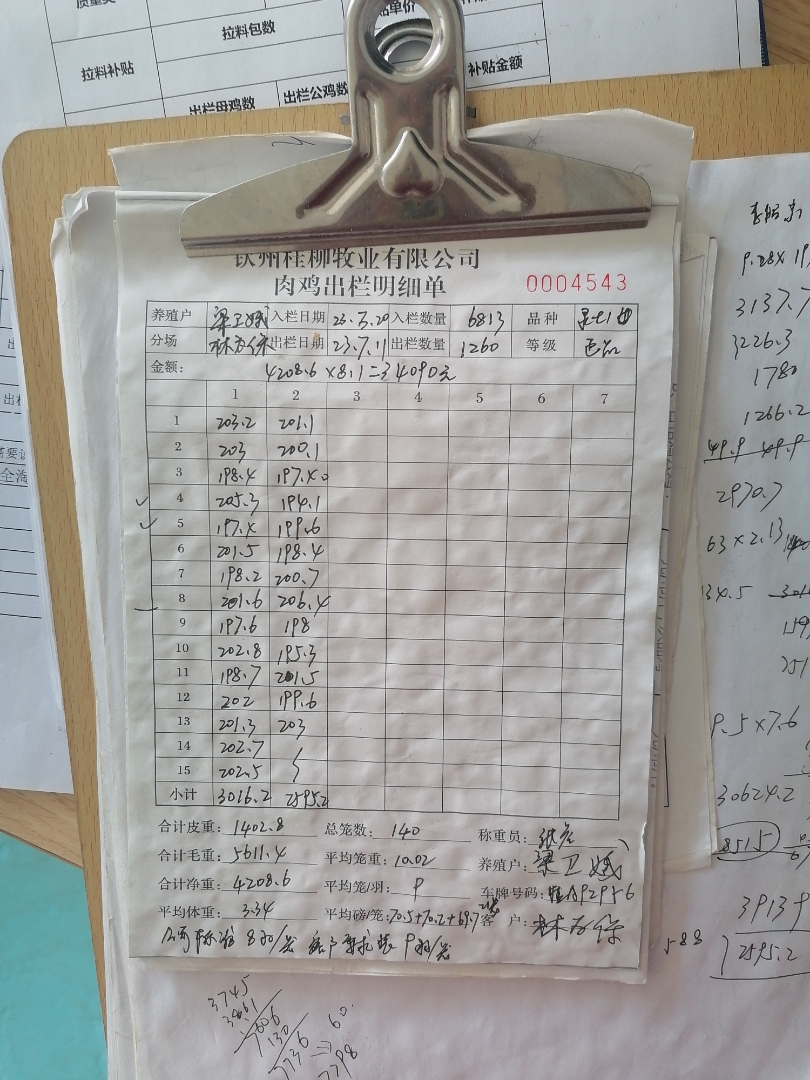 质量奖
拉料包数
拉料补贴
补贴金额
出栏母鸡数 出栏公鸡数
钦州桂柳牧业有限公司
肉鸡出栏明细单 0004543
养殖户 梁卫娥 入栏日期 23.3.20 入栏数量 6813 品种
分场 出栏日期 23.7.11 出栏数量 1260 等级 正品
金额: 4208.6×8.1=34090元
1 2 3 4 5 6 7
1 203.2 201.1
2 203 200.1
3 198.4 197.4
4 205.3 194.1
5 197.4 199.6
6 201.5 198.4
7 198.2 200.7
8 201.6 206.4
9 197.6 198
10 202.8 195.3
11 198.7 201.5
12 202 199.6
13 201.3 203
14 202.7
15 202.5
小计 3016.2 2595.2
合计皮重: 1402.8 总笼数: 140 称重员:
合计毛重: 5611.4 平均笼重: 10.02 养殖户: 梁卫娥
合计净重: 4208.6 平均笼/羽: 9 车牌号码: 桂A92956
平均体重: 3.34 平均磅/笼: 70.5+70.2+69.7 客 户:
公司标准 8羽/笼 客户要求装 9羽/笼
3137.7
3226.3
1780
1266.2
49.9 49.9
2970.7
63×2.13
134.5
9.5×7.6
30624.2
8515
39139
588 2595.2
3745
3861
7606
130
7736 60
7798